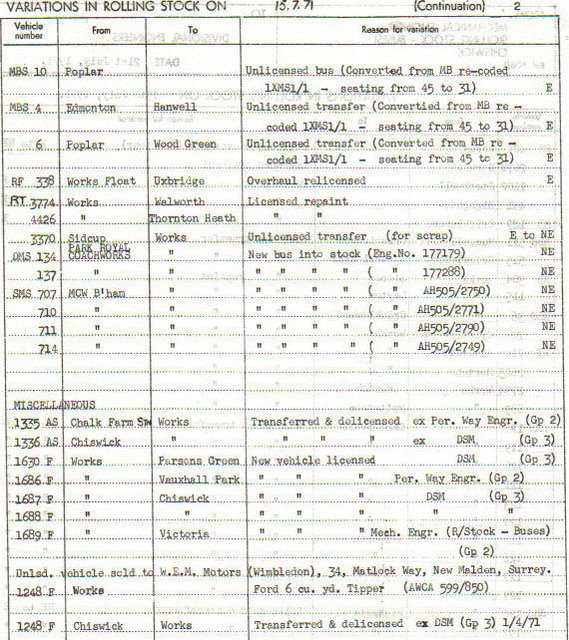 VARIATIONS IN ROLLING STOCK ON 15.7.71 (Continuation) 2
Vehicle number From To Reason for variation
MBS 10 Poplar Unlicensed bus (Converted from MB re-coded
1XMS1/1 - seating from 45 to 31) E
MBS 4 Edmonton Hanwell Unlicensed transfer (Convertied from MB re -
coded 1XMS1/1 - seating from 45 to 31) E
6 Poplar Wood Green Unlicensed transfer (Converted from MB re -
coded 1XMS1/1 - seating from 45 to 31) E
RF 338 Works Float Uxbridge Overhaul relicensed E
RT 3774 Works Walworth Licensed repaint
4426 " Thornton Heath " "
3370 Sidcup Works Unlicensed transfer (for scrap) E to NE
DMS 134 PARK ROYAL COACHWORKS " New bus into stock (Eng.No. 177179) NE
137 " " " " " " ( " 177288) NE
SMS 707 MCW B'ham " " " " " ( " AH505/2750) NE
710 " " " " " " ( " AH505/2771) NE
711 " " " " " " ( " AH505/2790) NE
714 " " " " " " ( " AH505/2749) NE
MISCELLANEOUS
1335 AS Chalk Farm Works Transferred & delicensed ex Per. Way Engr. (Gp 2)
1336 AS Chiswick " " " " ex DSM (Gp 3)
1630 F Works Parsons Green New vehicle licensed DSM (Gp 3)
1686 F " Vauxhall Park " " " Per. Way Engr. (Gp 2)
1687 F " Chiswick " " " DSM (Gp 3)
1688 F " " " " " " "
1689 F " Victoria " " " Mech. Engr. (R/Stock - Buses)
(Gp 2)
Unlsd. vehicle sold to W.E.M. Motors (Wimbledon), 34, Matlock Way, New Malden, Surrey.
1248 F Works Ford 6 cu. yd. Tipper (AWCA 599/850)
1248 F Chiswick Works Transferred & delicensed ex DSM (Gp 3) 1/4/71